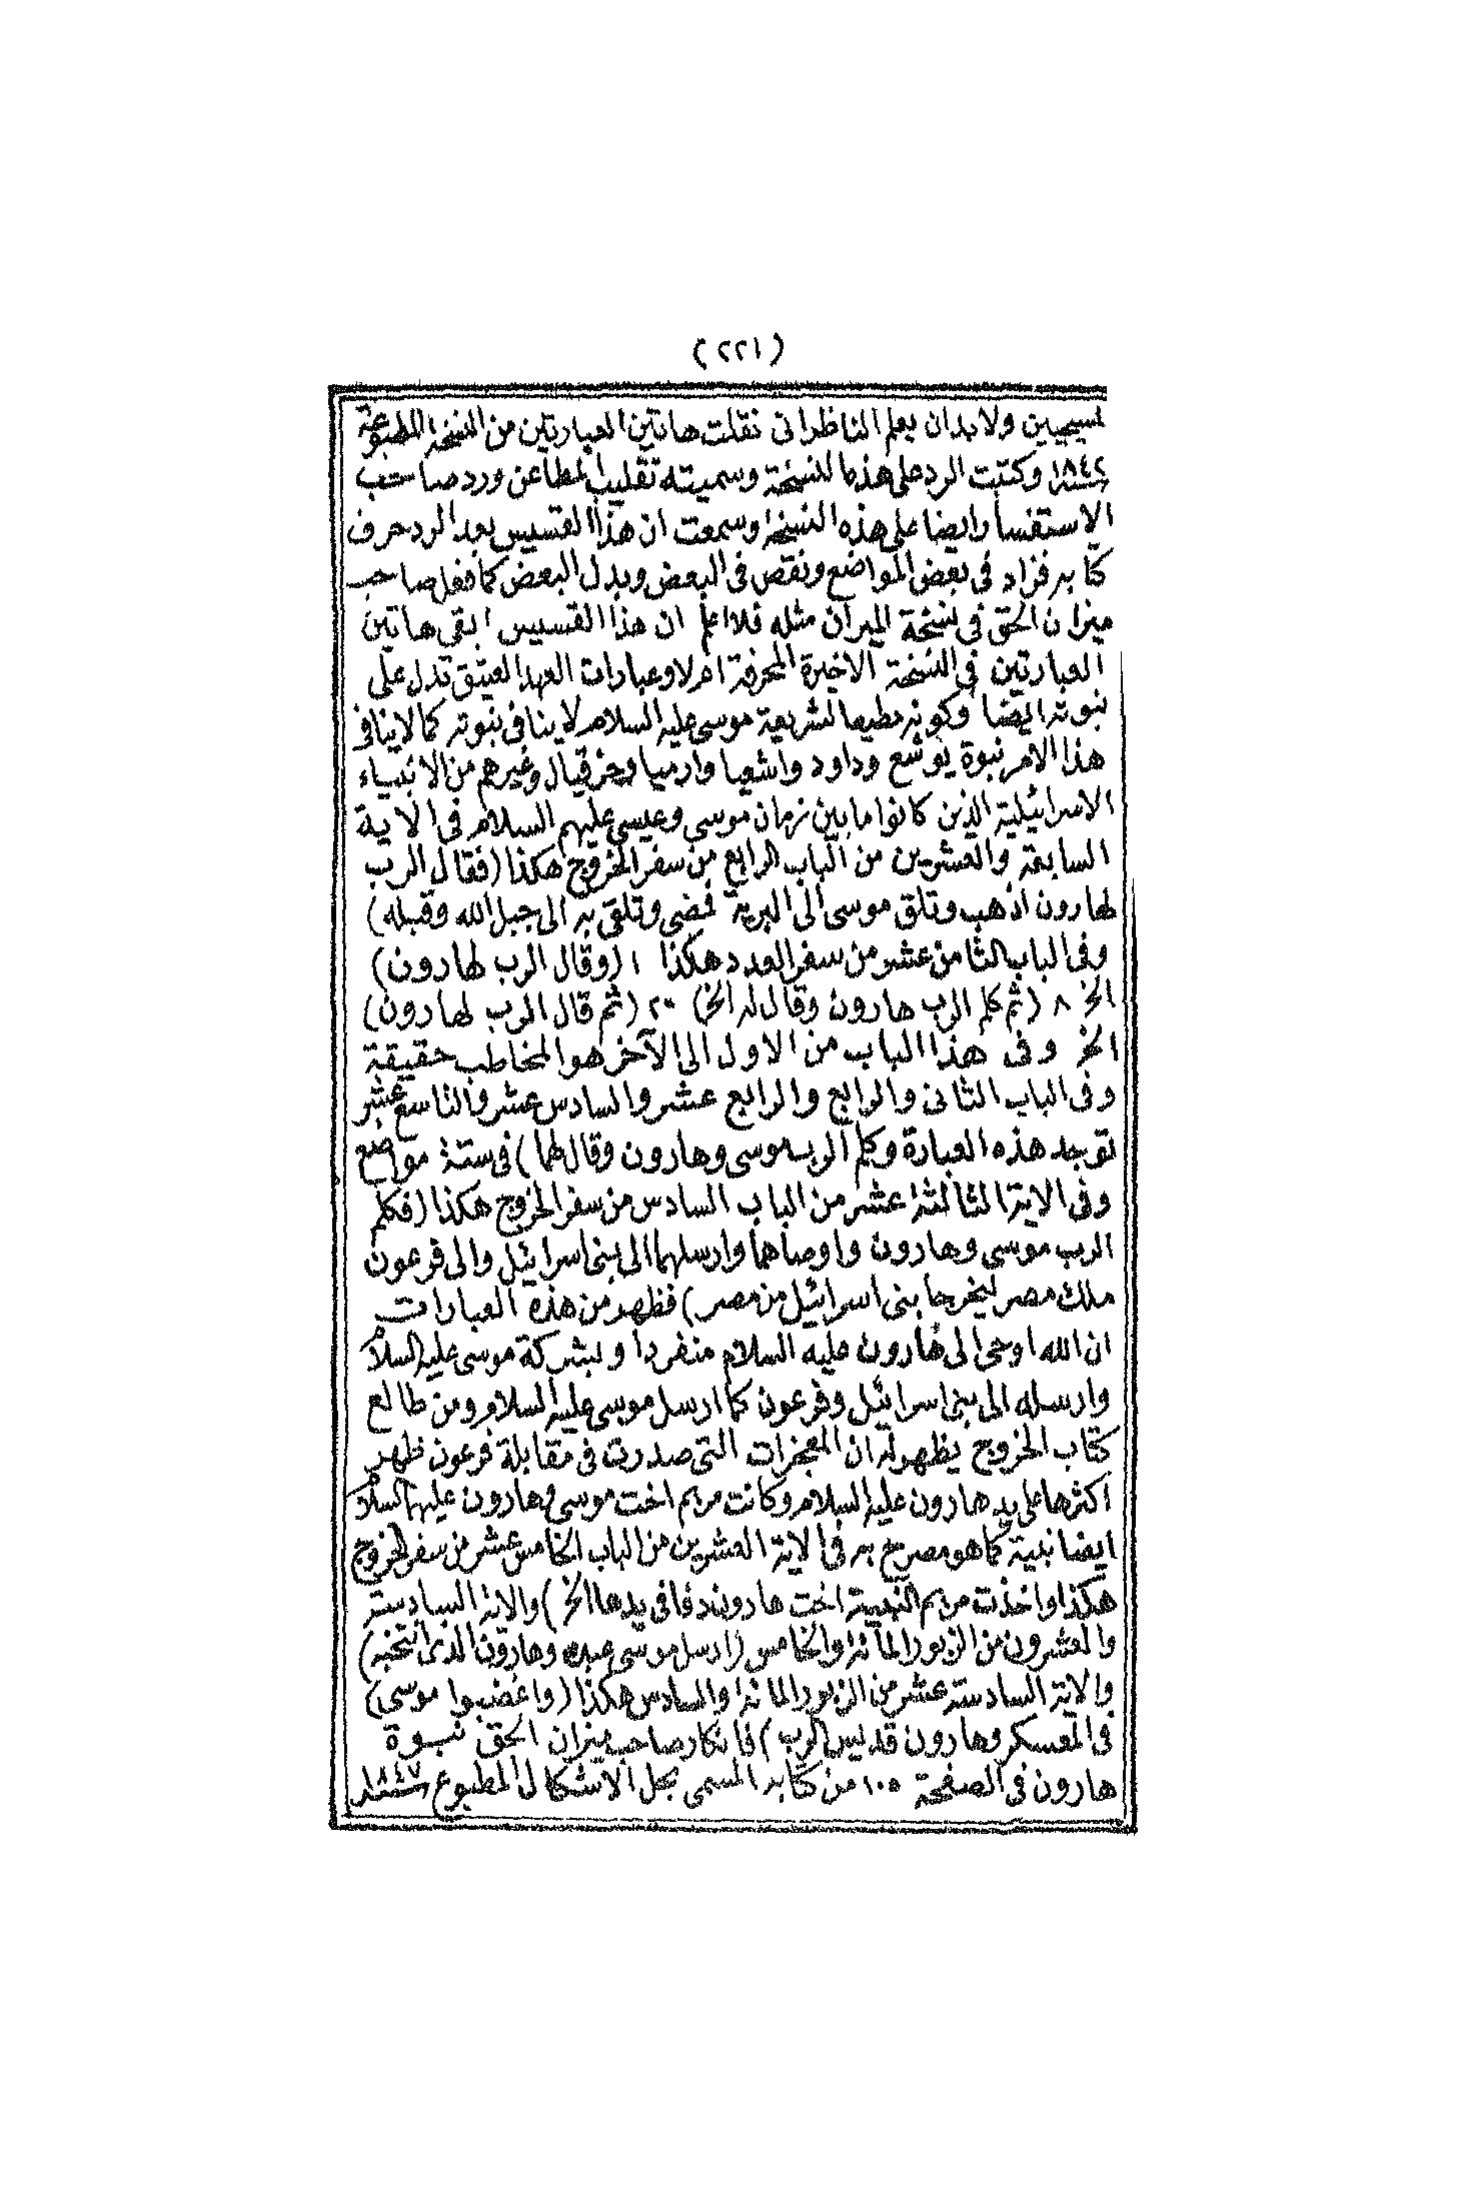 (٢٢١)
لمسيحيين ولابد ان يعلم الناظر انى نقلت هاتين العبارتين من النسخة المطبوعة
سنة ١٨٤٢ وكتبت الرد على هذه النسخة وسميته تقليب المطاعن ورد صاحب
الاستفسار ايضا على هذه النسخة وسمعت ان هذا القسيس بعد الرد حرف
كتابه فزاد فى بعض المواضع ونقص فى البعض وبدل البعض كما فعل صاحب
ميزان الحق فى نسخة الميزان مثله فلا اعلم ان هذا القسيس ابقى هاتين
العبارتين فى النسخة الاخيرة المحرفة ام لا وعبارات العهد العتيق تدل على
نبوته ايضا وكونه مطيعا لشريعة موسى عليه السلام لاينافى نبوته كما لاينافى
هذا الامر نبوة يوشع وداود واشعيا وارميا وحزقيال وغيرهم من الانبياء
الاسرائيلية الذين كانوا ما بين زمان موسى وعيسى عليهم السلام فى الاية
السابعة والعشرين من الباب الرابع من سفر الخروج هكذا (فقال الرب
لهارون اذهب وتلق موسى الى البرية فمضى وتلقى به الى جبل الله وقبله)
وفى الباب الثامن عشر من سفر العدد هكذا ١ (وقال الرب لهارون)
الخ ٨ (ثم كلم الرب هارون وقال له الخ) ٢٠ (ثم قال الرب لهارون)
الخ وفى هذا الباب من الاول الى الآخر هو المخاطب حقيقة
وفى الباب الثانى والرابع والرابع عشر والسادس عشر والتاسع عشر
توجد هذه العبارة وكلم الرب موسى وهارون وقال لهما) فى ستة مواضع
وفى الاية الثالثة عشر من الباب السادس من سفر الخروج هكذا (فكلم
الرب موسى وهارون واوصاهما وارسلهما الى بنى اسرائيل والى فرعون
ملك مصر ليخرجا بنى اسرائيل من مصر) فظهر من هذه العبارات
ان الله اوحى الى هارون عليه السلام منفردا وبشركة موسى عليه السلام
وارسله الى بنى اسرائيل وفرعون كما ارسل موسى عليه السلام ومن طالع
كتاب الخروج يظهر له ان المعجزات التى صدرت فى مقابلة فرعون ظهر
اكثرها على يد هارون عليه السلام وكانت مريم اخت موسى وهارون عليهما السلام
ايضا نبية كما هو مصرح به فى الاية العشرين من الباب الخامس عشر من سفر الخروج
هكذا واخذت مريم النبية اخت هارون دفا فى يدها الخ) والاية السادسة
والعشرون من الزبور المائة والخامس (ارسل موسى عبده وهارون الذى انتخبه)
والاية السادسة عشر من الزبور المائة والسادس هكذا (واغضبوا موسى)
فى المعسكر وهارون قديس الرب) فانكار صاحب ميزان الحق نبوة
هارون فى الصفحة ١٠٥ من كتابه المسمى بحل الاشكال المطبوع سنة ١٨٤٧